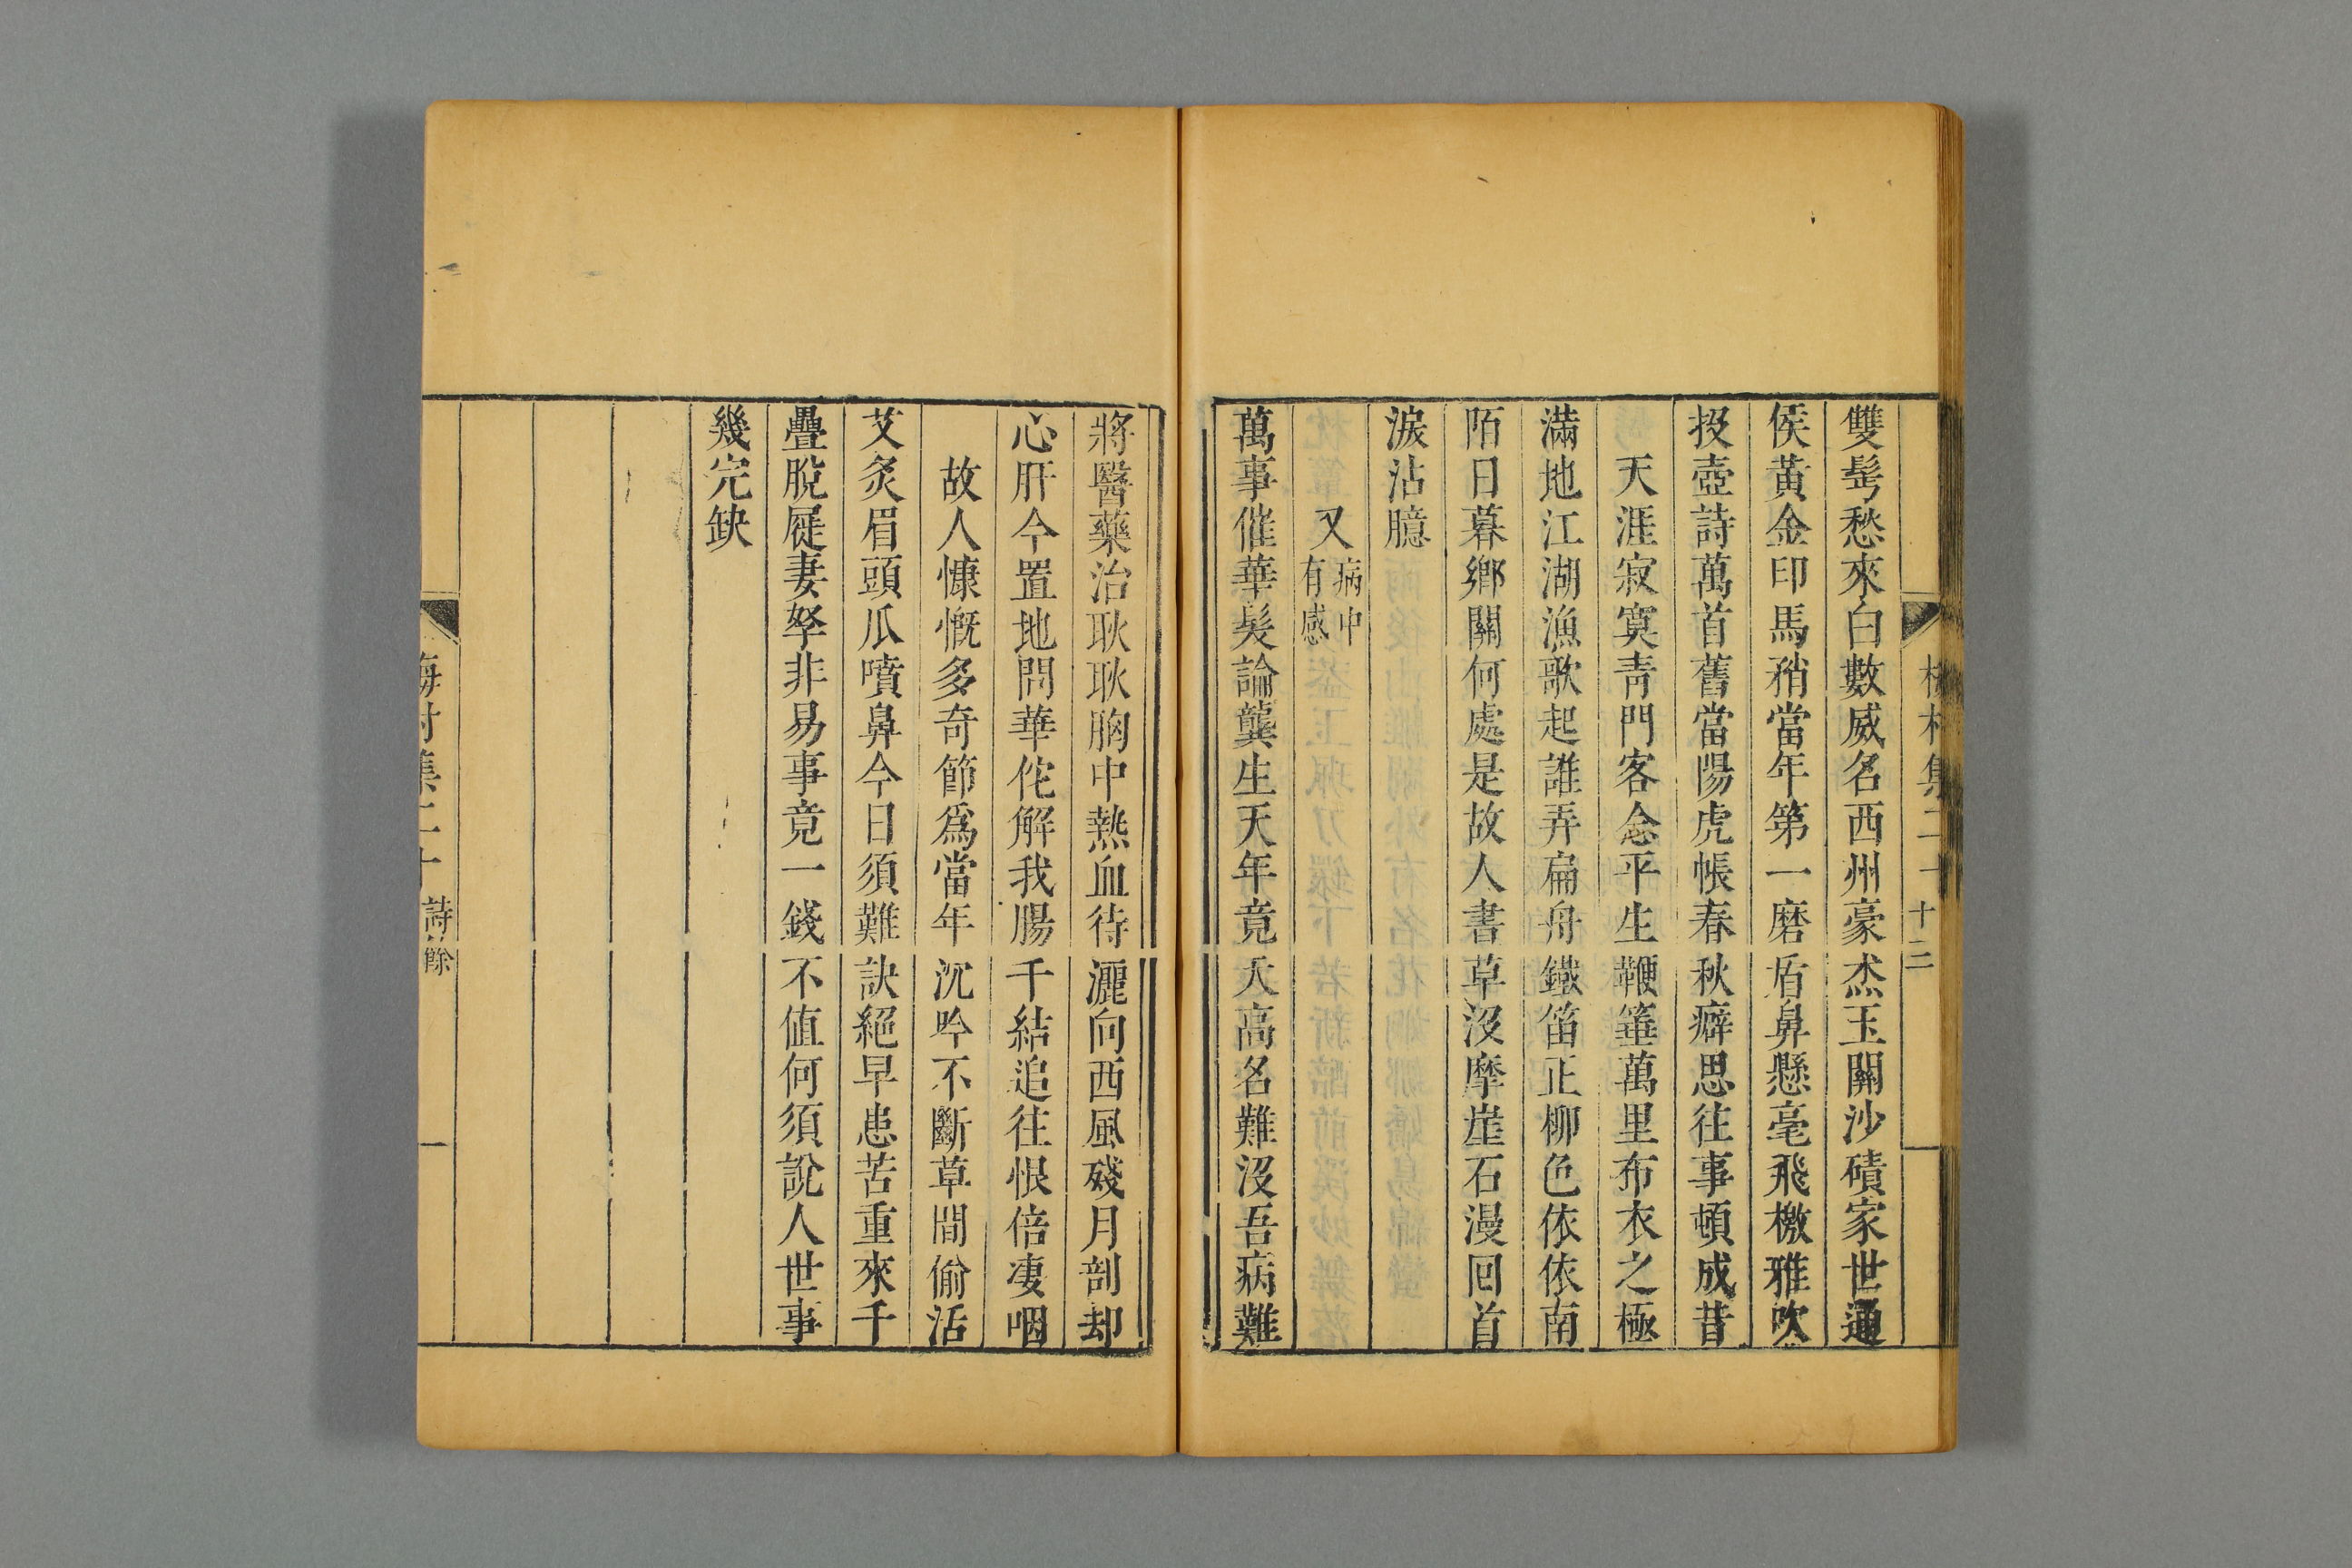 梅村集二十 十二
雙髩愁來白數威名西州豪杰玉關沙磧家世通
侯黃金印馬矟當年第一磨盾鼻懸毫飛檄雅吹
投壺詩萬首舊當陽虎帳春秋癖思往事頓成昔
天涯寂寞靑門客念平生鞭箠萬里布衣之極
滿地江湖漁歌起誰弄扁舟鐵笛正柳色依依南
陌日暮鄉關何處是故人書草沒摩崖石漫回首
淚沾臆
又病中有感
萬事催華髮論龔生天年竟夭高名難沒吾病難
將醫藥治耿耿胸中熱血待灑向西風殘月剖却
心肝今置地問華佗解我腸千結追往恨倍凄咽
故人慷慨多奇節爲當年沉吟不斷草間偷活
艾灸眉頭瓜噴鼻今日須難訣絕早患苦重來千
疊脫屣妻孥非易事竟一錢不值何須說人世事
幾完缺
梅村集二十 詩餘